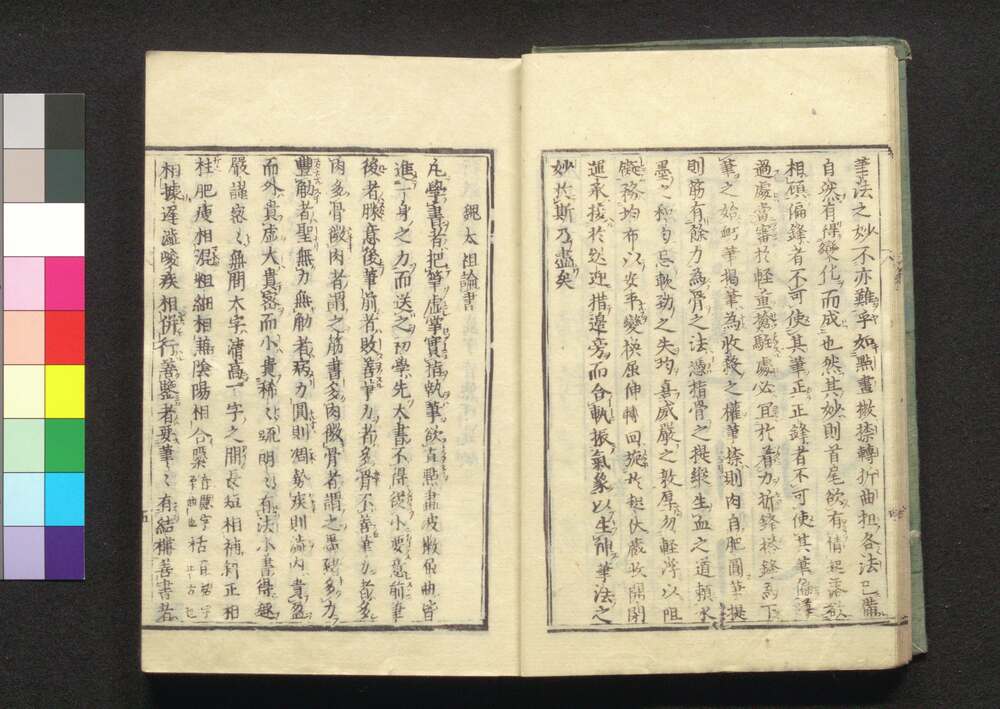 筆法之妙不亦難乎如點畫撇捺轉折曲抝各法已備
自然有變化而成也然其妙則首尾欲有情起落欲
相顧偏鋒者不可使其筆正正鋒者不可使其筆偏
過處當審於輕重搶駐處必宜於着力折鋒搭鋒為下
筆之始町筆揭筆為收斂之權筆捺則肉自肥圓筆提
則筋有餘力為骨之法憑指骨之提縱生血之道賴水
墨之和匀忌軟勁之失均喜威嚴之敦厚勿輕浮以阻
務均布以安平變換屈伸轉回旋於起伏藏於開閉
運承接於送迎措邊旁而合軌振氣象以生神筆法之
妙於斯乃盡矣
魏太祖論書
凡學書者把筆虛掌實指執筆欲直點畫波撇屈曲皆
進一身之力而送之初學先大書不得從小要意前筆
後者勝意後筆前者敗善筆力者多骨不善筆力者多
肉多骨微肉者謂之筋書多肉微骨者謂之墨猪多力
豐筋者聖無力無筋者病力圓則凋勢疾則澁內貴盈
而外貴虛大貴密而小貴稀々疏明々有法小書得趣
嚴謹密々無間大字清高一字之間長短相補斜正相
柱肥瘦相混粗細相兼陰陽相合
相據遲澁峻疾相行善鑒者要筆々有結構善書者